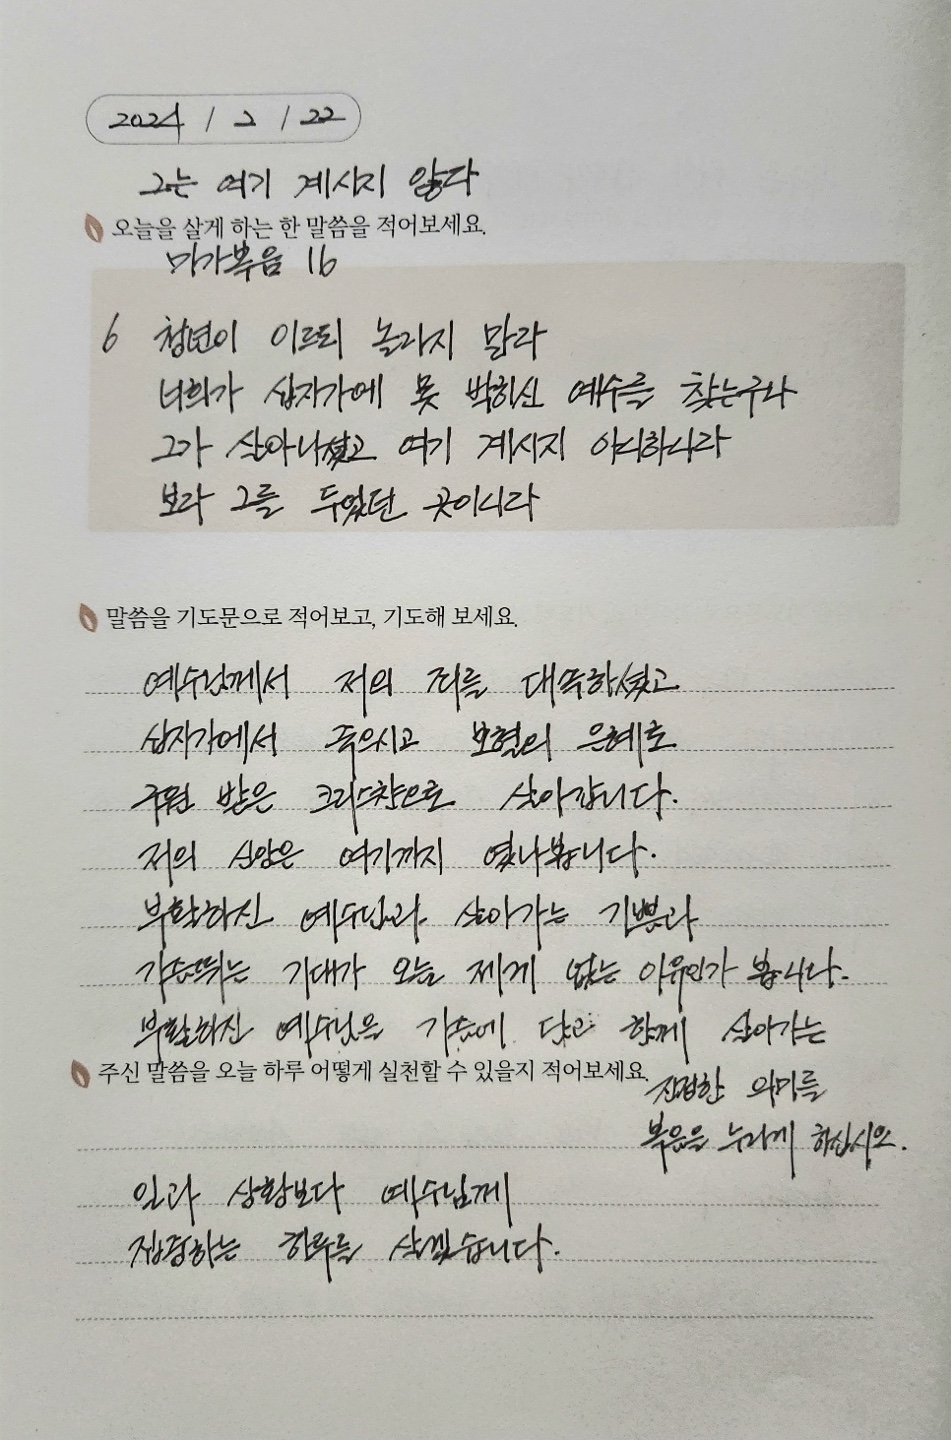 2024 / 2 / 22
그는 여기 계시지 않다
오늘을 살게 하는 한 말씀을 적어보세요.
마가복음 16
6 청년이 이르되 놀라지 말라
너희가 십자가에 못 박히신 예수를 찾는구나
그가 살아나셨고 여기 계시지 아니하니라
보라 그를 두었던 곳이니라
말씀을 기도문으로 적어보고, 기도해 보세요.
예수님께서 저의 죄를 대속하셨고
십자가에서 죽으시고 보혈의 은혜로
구원 받은 크리스찬으로 살아갑니다.
저의 신앙은 여기까지 였나봅니다.
부활하신 예수님과 살아가는 기쁨과
가슴뛰는 기대가 오늘 제게 없는 이유인가 봅니다.
부활하신 예수님을 가슴에 담고 함께 살아가는
진정한 의미를
복음을 누리게 하십시오.
주신 말씀을 오늘 하루 어떻게 실천할 수 있을지 적어보세요.
일과 상황보다 예수님께
집중하는 하루를 살겠습니다.